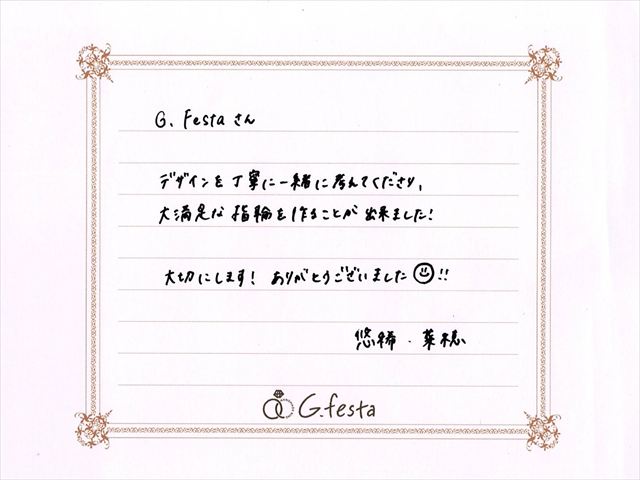 G. Festaさん
デザインを丁寧に一緒に考えてくださり、
大満足な指輪を作ることが出来ました!
大切にします! ありがとうございました☺!!
悠稀・菜穂
G.festa